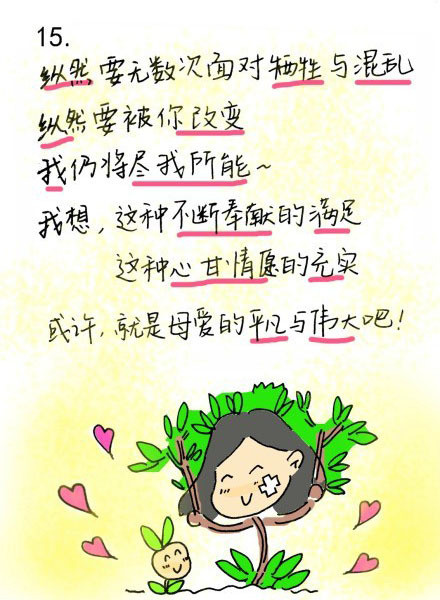 15.
纵然要无数次面对牺牲与混乱
纵然要被你改变
我仍将尽我所能~
我想，这种不断奉献的满足
这种心甘情愿的充实
或许，就是母爱的平凡与伟大吧！